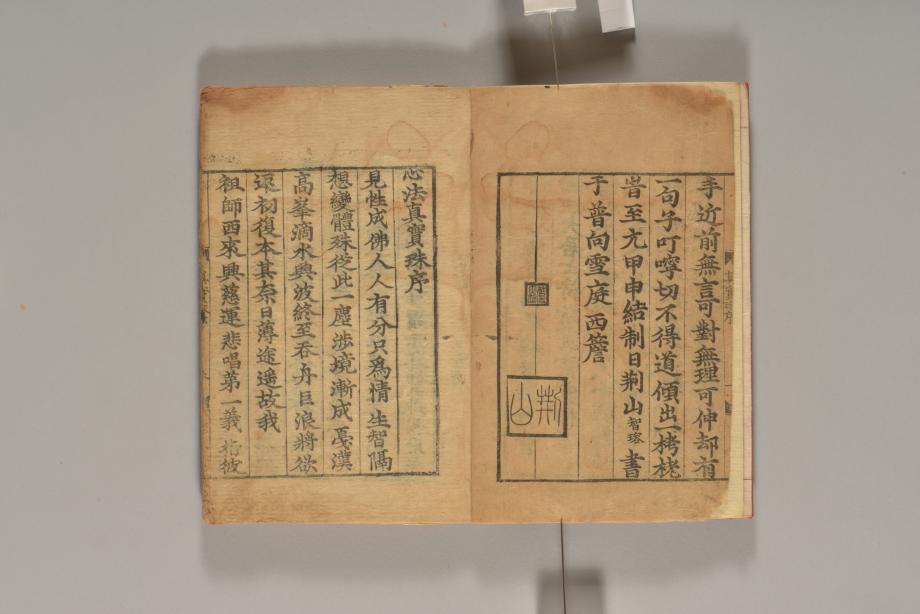 手近前無言可對無理可伸却有
一句子叮嚀切不得道傾出一栲栳
昔至元甲申結制日荆山智瑢書
于普向雪庭西簷
荆山
心法真實珠序
見性成佛人人有分只爲情生智隔
想變體殊從此一塵涉境漸成戛漢
高峯滴水興波終至吞舟巨浪將欲
還初復本其奈日薄途遥故我
祖師西來興慈運悲唱第一義指彼